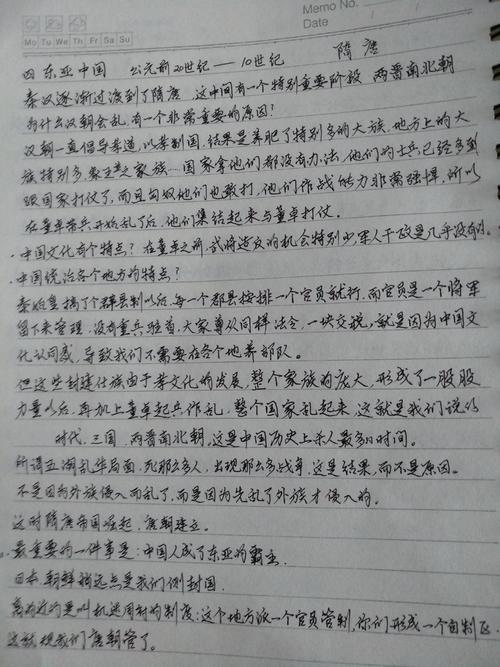 Memo No.
Date
Mo Tu We Th Fr Sa Su
四 东亚中国 公元前20世纪——10世纪 隋唐
秦汉逐渐过渡到了隋唐,这中间有一个特别重要阶段 两晋南北朝
为什么汉朝会乱,有一个非常重要的原因?
汉朝一直倡导孝道,以孝制国,结果是养肥了特别多的大族,地方上的大
族特别多,袁 之家族……国家拿他们都没有办法,他们的士兵已经多到
跟国家打仗了,而且匈奴他们也敢打,他们作战能力非常强悍,所以
在董卓带兵开始乱了后,他们集结起来与董卓打仗。
·中国文化有个特点?在董卓之所,武将造反的机会特别少,军人干政是几乎没有的。
·中国统治各个地方的特点?
秦始皇搞了个郡县制以后,每一个郡县按排一个官员就行,而官员是一个将军
留下来管理,没有重兵驻首,大家尊从同样法令,一块交税,就是因为中国文
化认同感,导致我们不需要在各个地养部队。
但这些封建仕族由于孝文化的发展,整个家族为庞大,形成了一股股
力量以后,再加上董卓起兵作乱,整个国家乱起来,这就是我们说的
时代,三国,两晋南北朝,这是中国历史上杀人最多的时间。
所谓五湖乱华局面,死那么多人,出现那么多战争,这是结果,而不是原因。
不是因为外族侵入而乱了,而是因为先乱了外族才侵入的。
这时隋唐帝国崛起,唐朝建立。
·最重要的一件事是:中国人成了东亚的霸主
日本 朝鲜 越远点是我们侧封国
的制度:这个地方派一个官员管制,你们形成一个自制区
这就 我们唐朝管了。